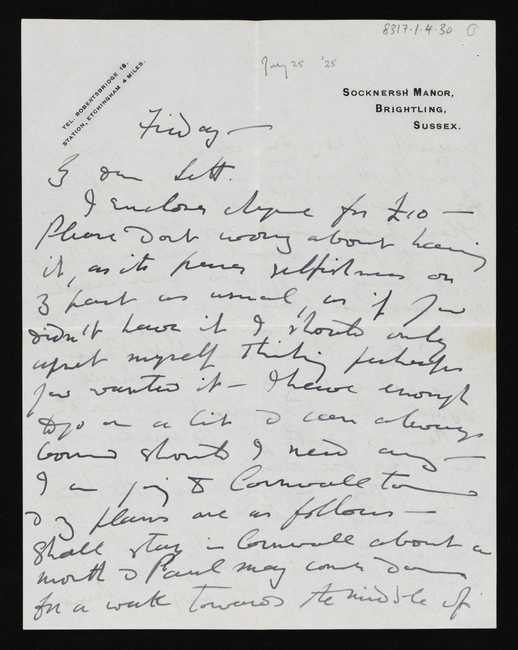 8317.1.4.30
July 25 '25
TEL. ROBERTSBRIDGE 18.
STATION, ETCHINGHAM 4 MILES.
SOCKNERSH MANOR,
BRIGHTLING,
SUSSEX.
Friday —
My dear
I enclose cheque for £10 —
Please don't worry about having
it, as its pure selfishness on
my part as usual, as if you
didn't have it I should only
upset myself thinking perhaps
you wanted it — I have enough
to go on a bit & can always
should I need any —
I am going to Cornwall
& my plans are as follows —
Shall stay in Cornwall about a
month & Paul may come down
for a week towards the middle of